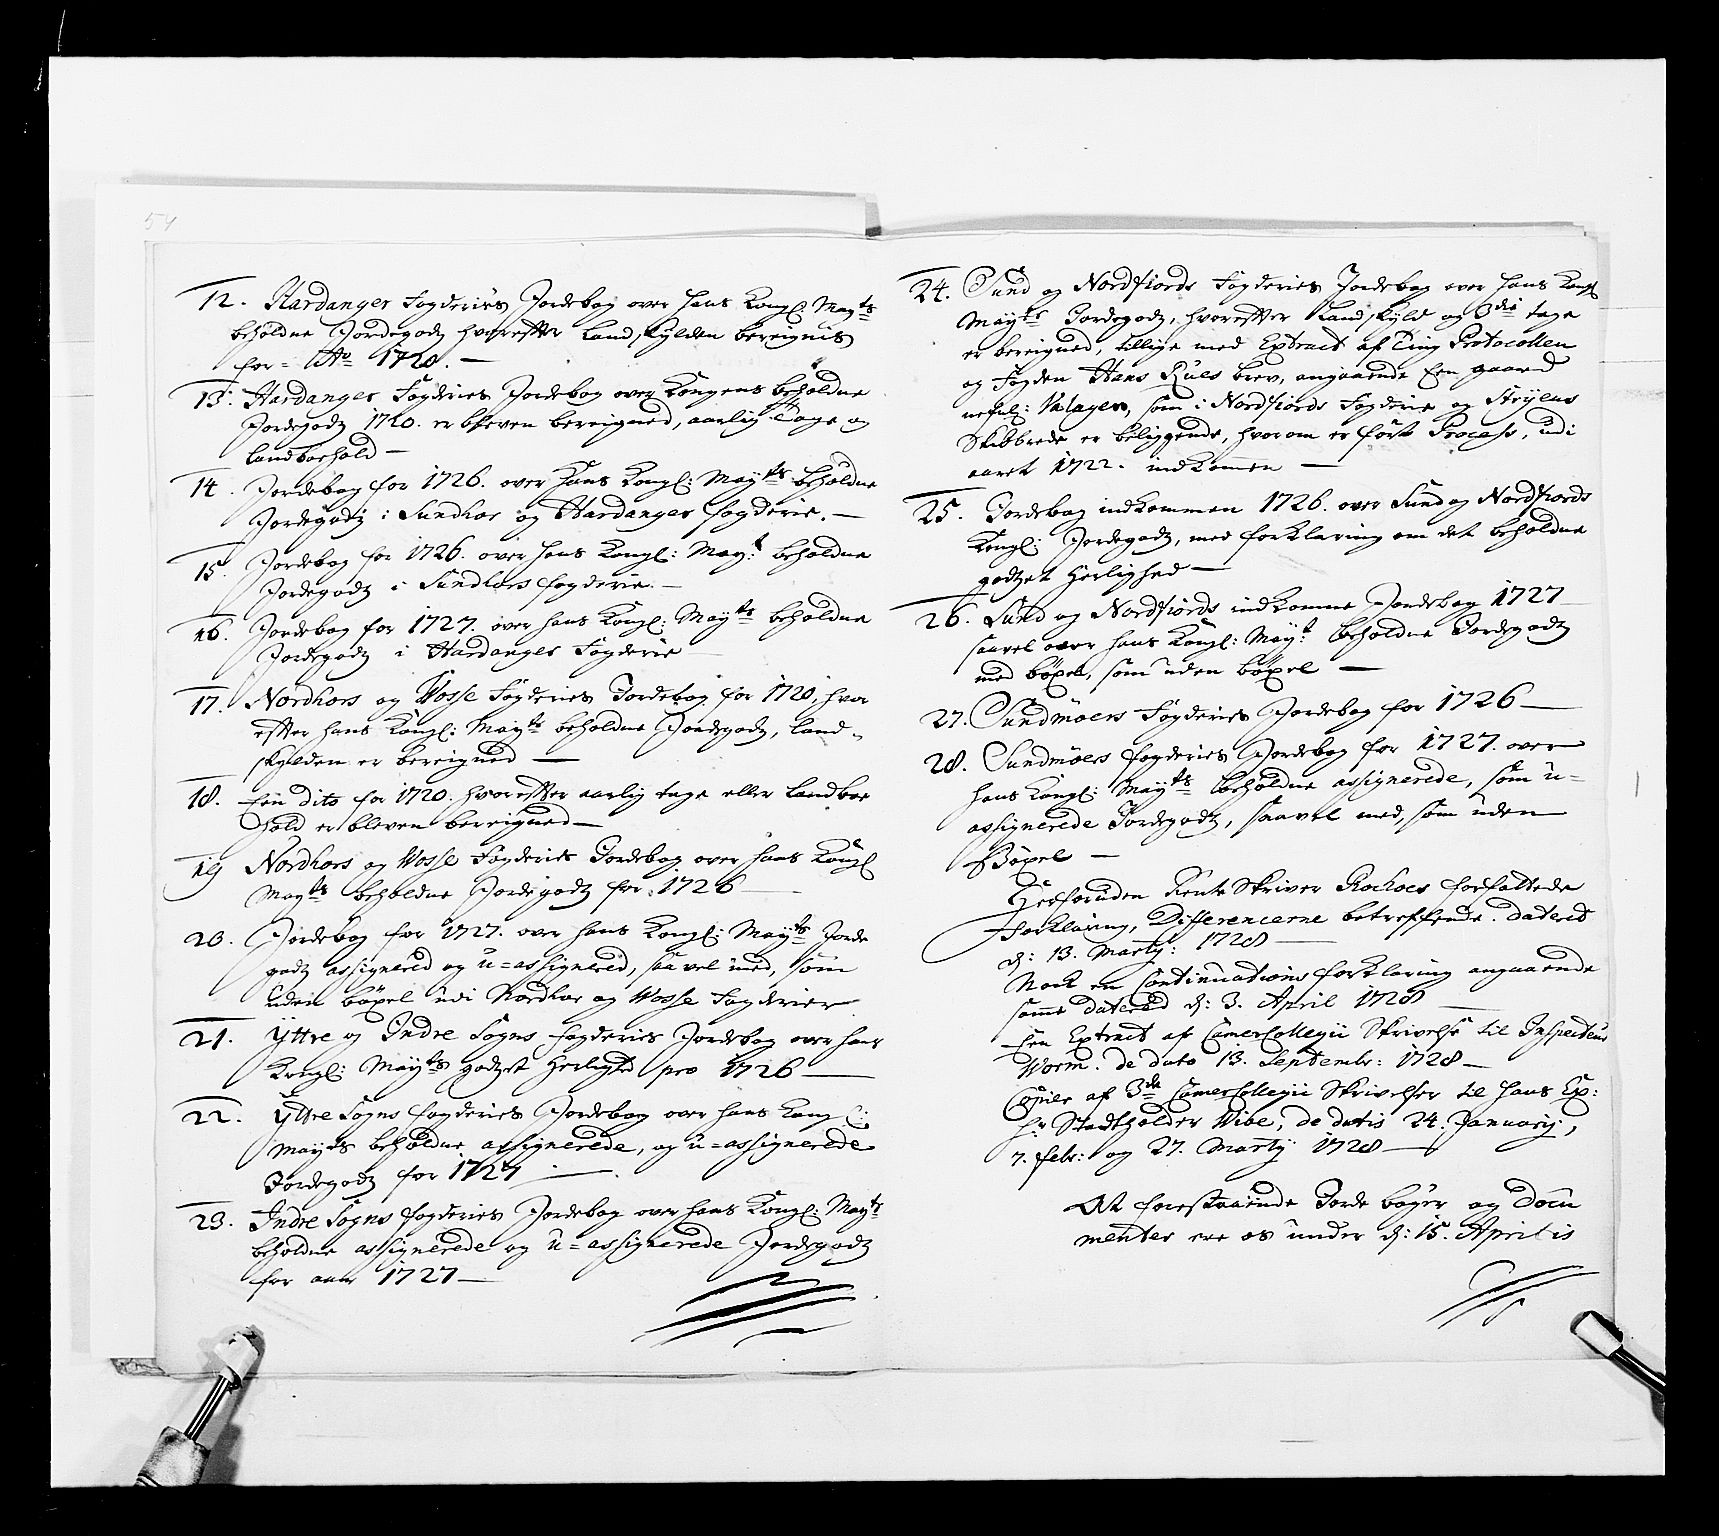 54
12. Hardanger Fogderies Jordebog over hans Kongl: Mayts
beholdne Jordegodz hvorefter Landskylden bereignis
for= Ao 1720. —
13. Hardanger Fogderies Jordebog over Kongens beholdne
Jordegodz 1720. er bleven bereigned, aarlig Tage og
Landboehold —
14. Jordebog for 1726. over hans Kongl: Mayts beholdne
Jordegodz i Sundhor og Hardanger fogderie. —
15. Jordebog for 1726. over hans Kongl: Mayt beholdne
Jordegodz i Sundhors fogderie. —
16. Jordebog for 1727. over hans Kongl: Mayts beholdne
Jordegodz i Hardanger Fogderie
17. Nordhors og Vosse Fogderies Jordebog for 1720, hvor
efter hans Kongl: Mayts beholdne Jordegodz, Land-
skylden er bereigned —
18. Een dito for 1720. hvorefter aarlig tage eller Landboe
hold er bleven bereigned —
19 Nordhors og Vosse Fogderies Jordebog over hans Kongl
Mayts beholdne Jordegodz for 1726
20. Jordebog for 1727. over hans Kongl: Mayts Jorde
godz assignered og u=assignered, saavel med, som
uden böxel udi Nordhor og Vosse Fogderier
21. Yttre og Indre Sogns fogderies Jordebog over hans
Kongl: Mayts godzet Herlighed pro 1726 —
22. Yttre Sogns fogderies Jordebog over hans Kongl:
Mayts beholdne assignerede, og u=assignerede
Jordegodz for 1727 —
23. Indre Sogns fogderies Jordebog over hans Kongl: Mayts
beholdne assignerede og u=assignerede Jordegodz
for aar 1727 —
24. Sund og Nordfiords Fogderies Jordebog over hans Kongl
Mayts Jordegodz, hvorefter Landskyld og 3die tage
er bereigned, tillige med Extract af Ting Protocollen
og Fogden Hans Rües brev, angaaende Een gaard
nefnl: Valager, som i Nordfiords Fogderie og Stryens
Skibbrede er beliggende, hvorom er fört Process, udi
aaret 1722. indkomen —
25. Jordebog indkommen 1726. over Sund og Nordfiords
Kongl: Jordegodz, med forklaring om det beholdne
godzet Herlighed —
26. Sund og Nordfiords indkomne Jordebog 1727
saavel over hans Kongl: Mayt: beholdne Jordegodz
med böxel, som uden böxel —
27. Sundmöers Fogderies Jordebog for 1726 —
28. Sundmöers fogderies Jordebog for 1727. over
hans Kongl: Mayts beholdne assignerede, som u=
assignerede Jordegodz, saavel med, som uden
Böxel —
Hesforuden Rente Skriver Rochoes forfattede
Forklaring, Differencerne betreffende. dateret
d: 13. Marty: 1728 —
Nock en Continuations forklaring angaaende
samme datered d: 3. April 1728 —
Een Extract af Camer Collegii Skrivelse til Inspecteur
Worm. de dato 13. Septembr: 1728 —
Copier af 3de Camer Collegii Skrivelser til hans Ex:
Hr Stadtholder Vibe, de datis 24. Januarij,
7. febr: og 27. Marty 1728 —
At forestaaende Jorde bøger og Docu
menter ere os under d: 15. Aprilis